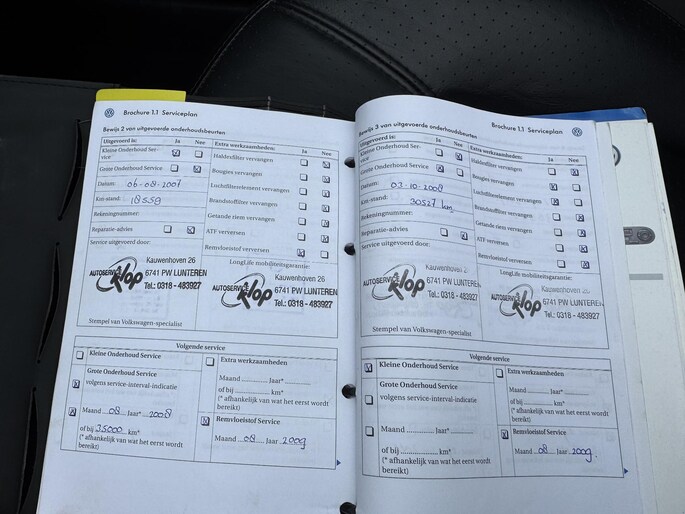 Brochure 1.1 Serviceplan
Bewijs 2 van uitgevoerde onderhoudsbeurten
Uitgevoerd is: Ja Nee
Extra werkzaamheden: Ja Nee
Kleine Onderhoud Ser-
vice
Grote Onderhoud Service
Datum: 06-08-2007
Km-stand: 18559
Rekeningnummer:
Reparatie-advies
Service uitgevoerd door:
Halderfilter vervangen
Bougies vervangen
Luchtfilterelement vervangen
Brandstoffilter vervangen
Getande riem vervangen
ATF verversen
Remvloeistof verversen
LongLife mobiliteitsgarantie:
AUTOSERVICE Klop
Kauwenhoven 26
6741 PW LUNTEREN
Tel.: 0318 - 483927
AUTOSERVICE Klop
Kauwenhoven 26
6741 PW LUNTEREN
Tel.: 0318 - 483927
Stempel van Volkswagen-specialist
Volgende service
Kleine Onderhoud Service
Grote Onderhoud Service
volgens service-interval-indicatie
Maand 08 Jaar* 2008
of bij 35000 km*
(* afhankelijk van wat het eerst wordt
bereikt)
Extra werkzaamheden
Maand Jaar*
of bij km*
(* afhankelijk van wat het eerst wordt
bereikt)
Remvloeistof Service
Maand 08 Jaar 2009
Brochure 1.1 Serviceplan
Bewijs 3 van uitgevoerde onderhoudsbeurten
Uitgevoerd is: Ja Nee
Extra werkzaamheden: Ja Nee
Kleine Onderhoud Ser-
vice
Grote Onderhoud Service
Datum: 03-10-2008
Km-stand: 30527 km
Rekeningnummer:
Reparatie-advies
Service uitgevoerd door:
Halderfilter vervangen
Bougies vervangen
Luchtfilterelement vervangen
Brandstoffilter vervangen
Getande riem vervangen
ATF verversen
Remvloeistof verversen
LongLife mobiliteitsgarantie:
AUTOSERVICE Klop
Kauwenhoven 26
6741 PW LUNTEREN
Tel.: 0318 - 483927
AUTOSERVICE Klop
Kauwenhoven 26
6741 PW LUNTEREN
Tel.: 0318 - 483927
Stempel van Volkswagen-specialist
Volgende service
Kleine Onderhoud Service
Grote Onderhoud Service
volgens service-interval-indicatie
Maand Jaar*
of bij km*
(* afhankelijk van wat het eerst wordt
bereikt)
Extra werkzaamheden
Maand Jaar*
of bij km*
(* afhankelijk van wat het eerst wordt
bereikt)
Remvloeistof Service
Maand 08 Jaar 2009